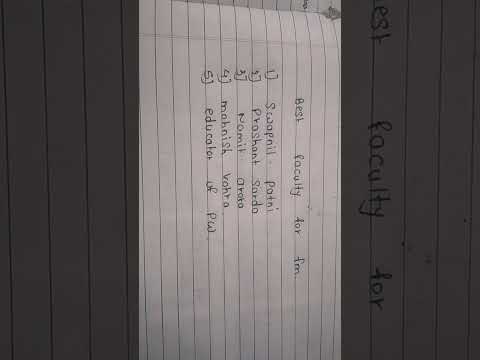 Best faculty for fm.
1) Swapnil patni
2) Prashant Sarda
3) Namit arora
4) mahnish vohra
5) educator of PW.